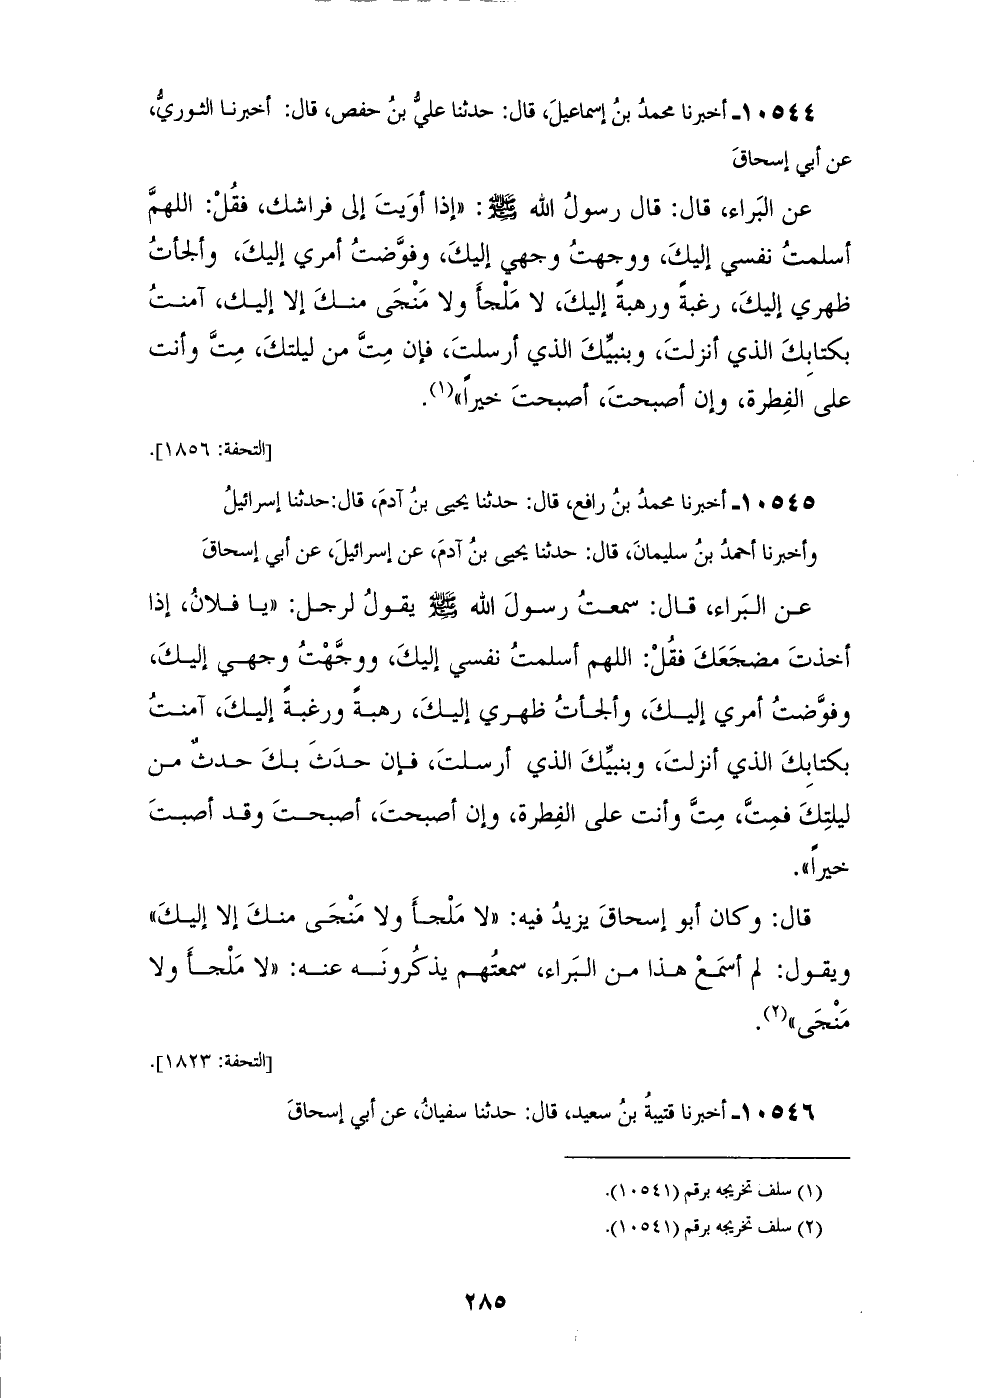 ١٠٥٤٤ـ أخبرنا محمدُ بنُ إسماعيلَ، قال: حدثنا عليُّ بنُ حفص، قال: أخبرنا الثوريُّ،
عن أبي إسحاقَ
عن البَراء، قال: قال رسولُ الله ﷺ: «إذا أوَيتَ إلى فراشك، فقُلْ: اللهمَّ
أسلمتُ نفسي إليكَ، ووجهتُ وجهي إليكَ، وفوَّضتُ أمري إليكَ، وألجأتُ
ظهري إليكَ، رغبةً ورهبةً إليكَ، لا مَلْجأَ ولا مَنْجَى منكَ إلا إليك، آمنتُ
بكتابِكَ الذي أنزلتَ، وبنبيِّكَ الذي أرسلتَ، فإن مِتَّ من ليلتكَ، مِتَّ وأنت
على الفِطرة، وإن أصبحتَ، أصبحتَ خيراً»(١).
[التحفة: ١٨٥٦].
١٠٥٤٥ـ أخبرنا محمدُ بنُ رافع، قال: حدثنا يحيى بنُ آدمَ، قال:حدثنا إسرائيلُ
وأخبرنا أحمدُ بنُ سليمانَ، قال: حدثنا يحيى بنُ آدمَ، عن إسرائيلَ، عن أبي إسحاقَ
عن البَراء، قال: سمعتُ رسولَ الله ﷺ يقولُ لرجل: «يا فلانُ، إذا
أخذتَ مضجَعَكَ فقُلْ: اللهم أسلمتُ نفسي إليكَ، ووجَّهْتُ وجهي إليكَ،
وفوَّضتُ أمري إليكَ، وألجأتُ ظهري إليكَ، رهبةً ورغبةً إليكَ، آمنتُ
بكتابِكَ الذي أنزلتَ، وبنبيِّكَ الذي أرسلتَ، فإن حدَثَ بكَ حدثٌ من
ليلتِكَ فمِتَّ، مِتَّ وأنت على الفِطرة، وإن أصبحتَ، أصبحتَ وقد أصبتَ
خيراً».
قال: وكان أبو إسحاقَ يزيدُ فيه: «لا مَلْجأَ ولا مَنْجَى منكَ إلا إليكَ»
ويقول: لم أسمَعْ هذا من البَراء، سمعتُهم يذكُرونَه عنه: «لا مَلْجأَ ولا
مَنْجَى»(٢).
[التحفة: ١٨٢٣].
١٠٥٤٦ـ أخبرنا قتيبةُ بنُ سعيد، قال: حدثنا سفيانُ، عن أبي إسحاقَ
(١) سلف تخريجه برقم (١٠٥٤١).
(٢) سلف تخريجه برقم (١٠٥٤١).
٢٨٥